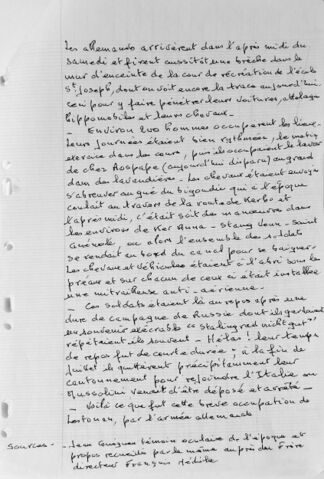 Les allemands arrivèrent dans l'après midi du
samedi et firent aussitôt une brèche dans le
mur d'enceinte de la cour de récréation de l'école
St Joseph, dont on voit encore la trace aujourd'hui,
ceci pour y faire pénétrer leurs voitures, attelage
hippomobiles et leurs chevaux. -
- Environ 200 hommes occuperent les lieux
Leurs journées étaient bien rythmées, le matin
exercice dans les cours, puis ils occupaient le lavoir
de chez Rospape (aujourd'hui disparu) au grand
dam des lavandières - Les chevaux étaient envoyés
s'abreuver au gué du bigoudic qui à l'époque
coulait au travers de la route de Kerbo et
l'après midi, c'était soit des manœuvres dans
les environs de Ker Anna - Stang Veur - Saint
Guénolé, ou alors l'ensemble des soldats
se rendait au bord du canal pour se baigner.
Les chevaux et véhicules étaient à l'abri sous le
preau et sur chacun de ceux ci était installée
une mitrailleuse anti-aérienne. -
- Ces soldats étaient là au repos après une
dure campagne de Russie dont ils gardaient
un souvenir exécrable "Stalingrad nicht gut"
répétaient ils souvent - Hélas ! leur temps
de repos fut de courte durée ; à la fin de
juillet ils quittèrent précipitamment leur
cantonnement pour rejoindre l'Italie où
Mussolini venait d'être déposé et arrêté -
- Voilà ce que fut cette breve occupation de
Lestonan, par l'armée allemande
Sources - - Jean Guéguen témoin oculaire de l'époque et
propos recueillis par le même auprès du Frère
directeur François